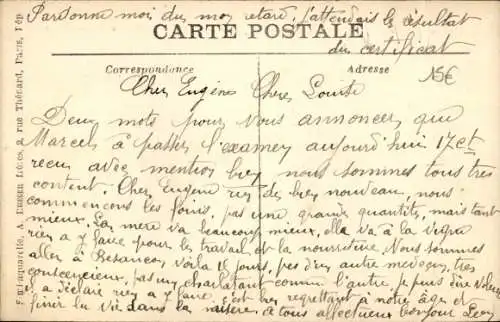 Pardonne moi du moy retard, j'attendais le résultat
du certificat
CARTE POSTALE
Correspondance
Adresse
15€
Cher Eugène Chère Louise
Deux mots pour vous annoncer que
Marcel à passer l'examen aujourd'hui 17 et
recu avec mention bien nous sommes tous très
content. Cher Eugène rien de bien nouveau, nous
commencons les foins, pas une grande quantité, mais tant
mieux. La mère va beaucoup mieux, elle va à la vigne
rien a y faire pour le travail et la nourriture. Nous sommes
aller à Besancon, voila 15 jours, pas d'un autre medecin, très
consencieux, pas un charlatant comme l'autre, je puis dire
a éclaire rien a y faire, c'est bien regrettant à notre âge de
finir la vie dans la misère, à tous affectueux bonjour Leon
A. rue Thénard, Paris, Dép